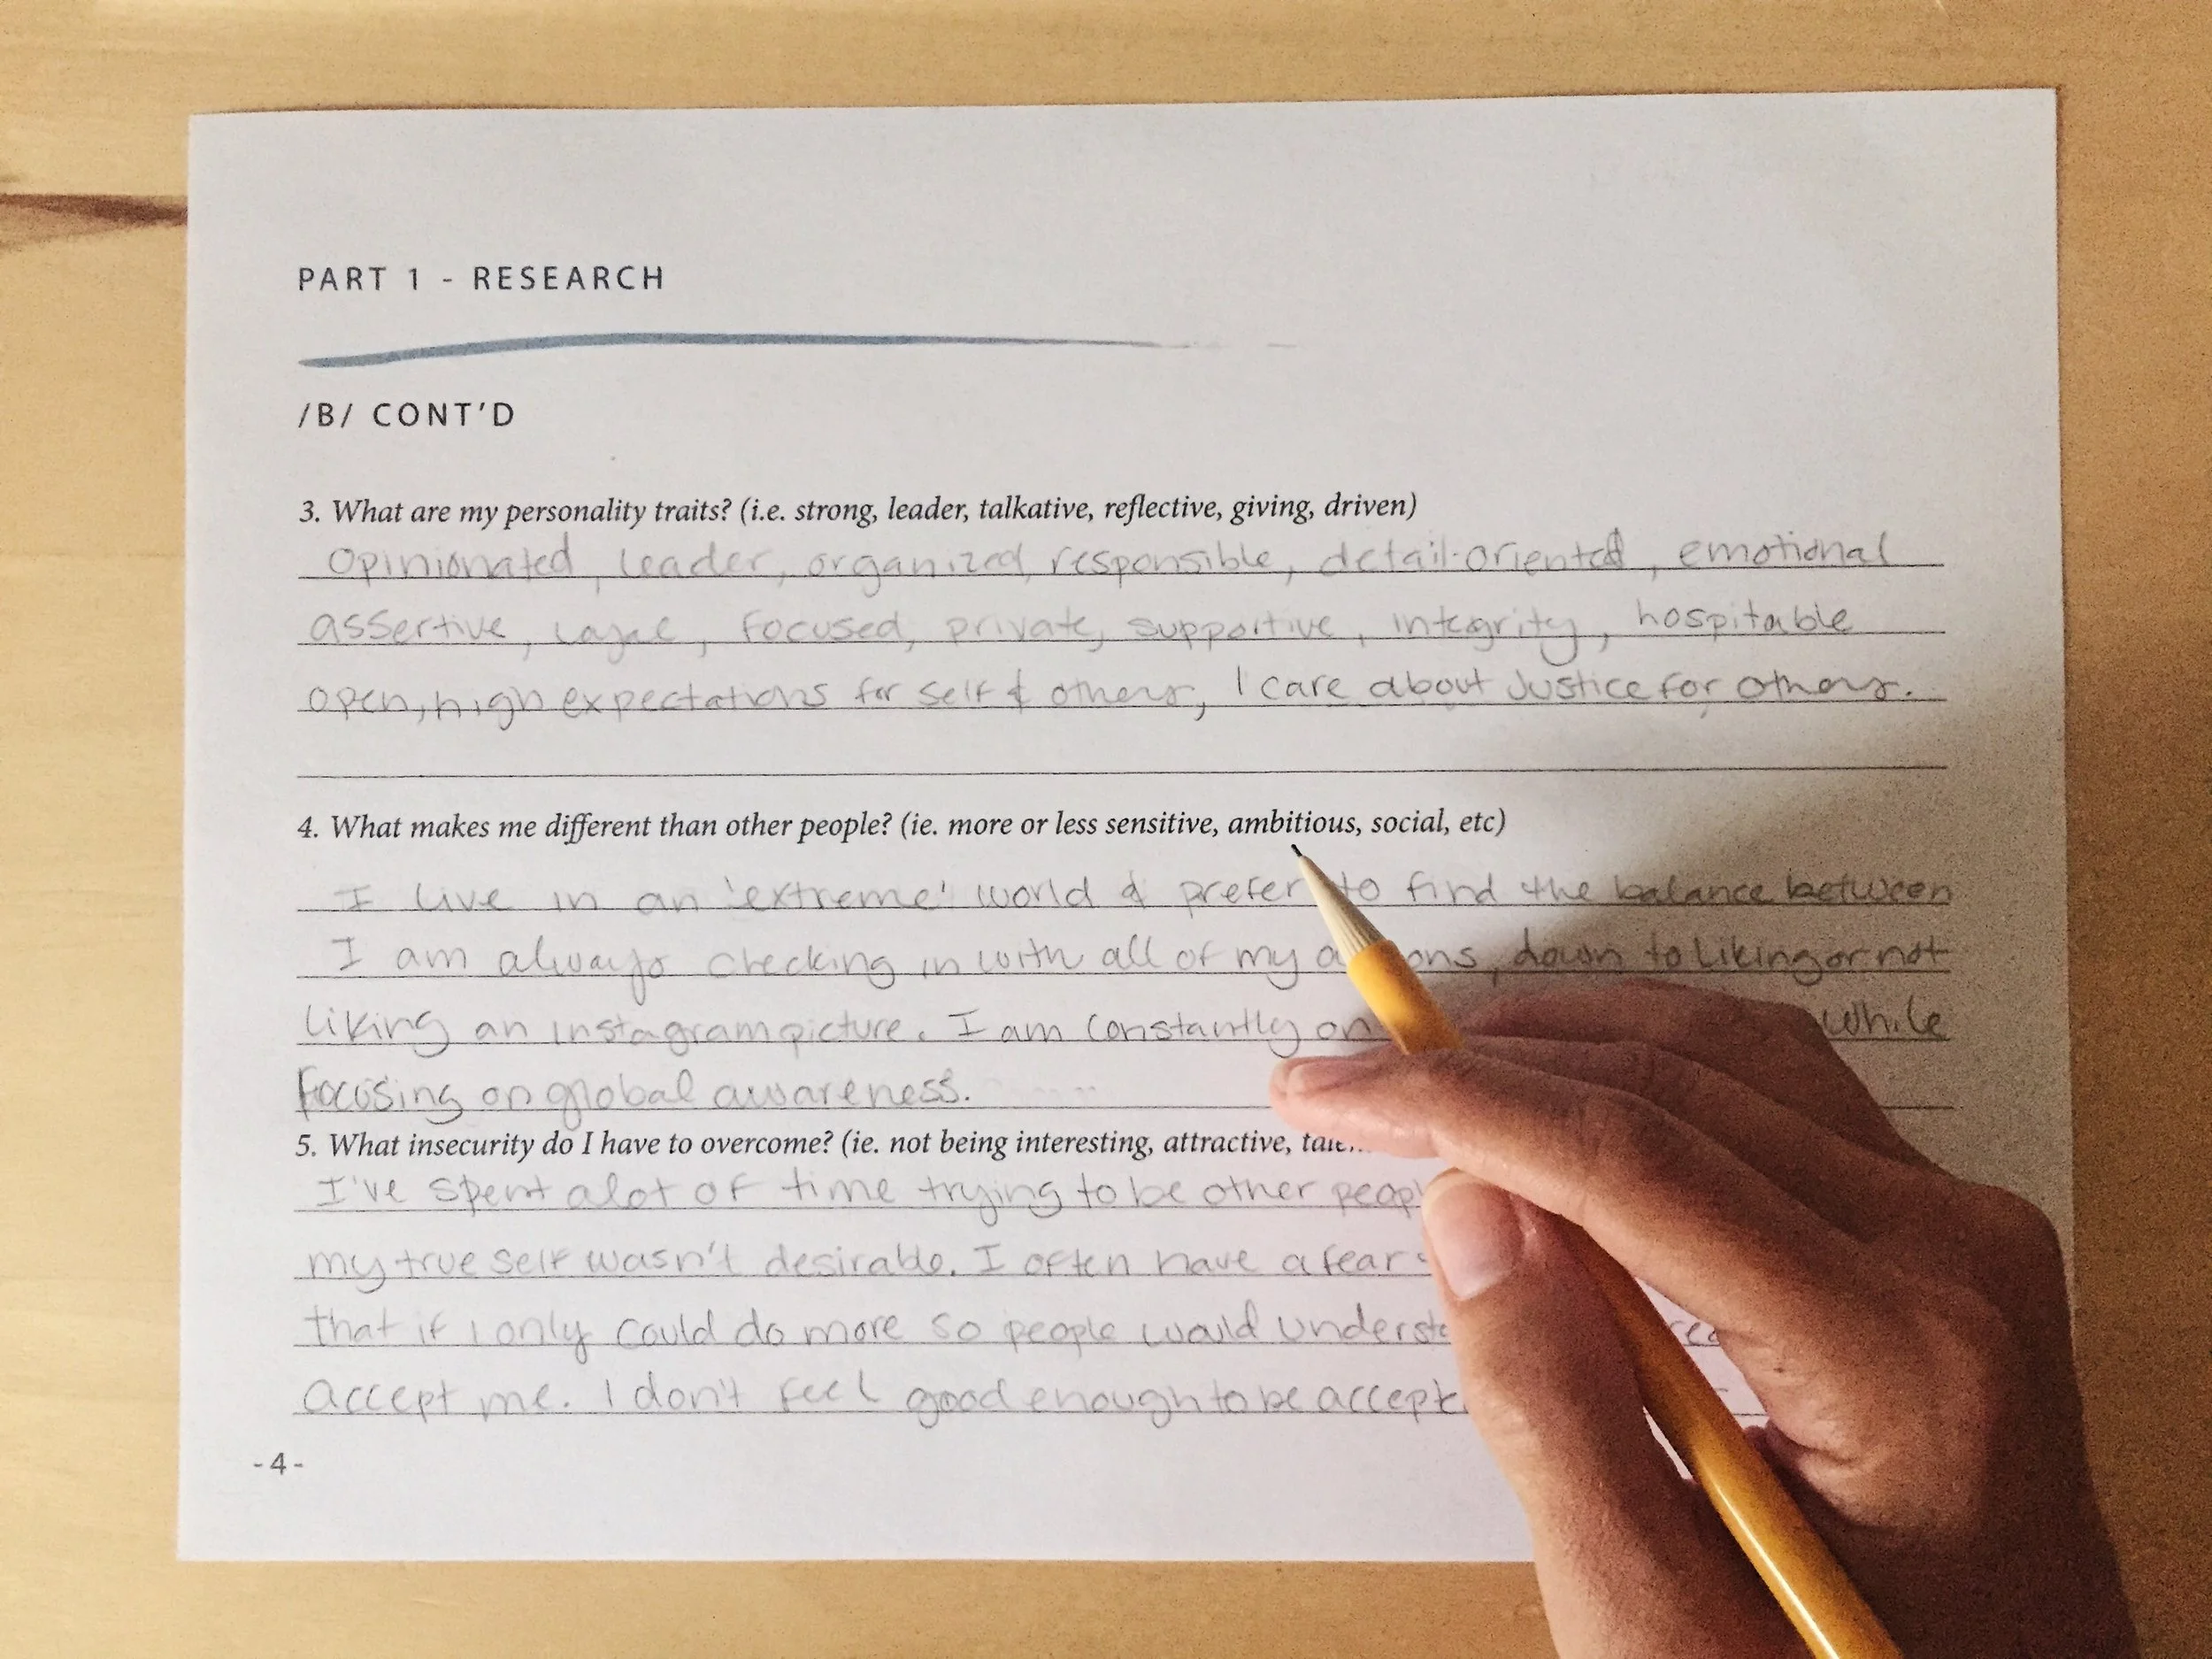 PART 1 - RESEARCH
/B/ CONT'D
3. What are my personality traits? (i.e. strong, leader, talkative, reflective, giving, driven)
Opinionated, leader, organized, responsible, detail-oriented, emotional
assertive, loyal, focused, private, supportive, integrity, hospitable
open, high expectations for self & others, I care about Justice for others.
4. What makes me different than other people? (ie. more or less sensitive, ambitious, social, etc)
I live in an 'extreme' world & prefer to find the balance between
I am always checking in with all of my down to liking or not
liking an instagram picture. I am constantly on while
focusing on global awareness.
5. What insecurity do I have to overcome? (ie. not being interesting, attractive,
I've spent alot of time trying to be other
my true self wasn't desirable. I often have a fear
that if I only could do more so people would
accept me. I don't feel good enough to be
-4-